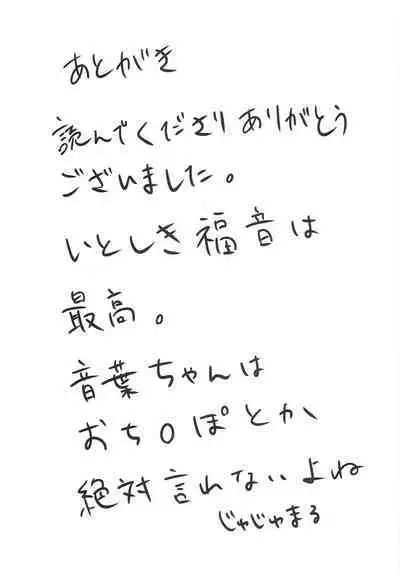 あとがき
読んでくださりありがとう
ございました。
いとしき福音は
最高。
音葉ちゃんは
おち○ぽとか、
絶対言れないよね
じゃじゃまる